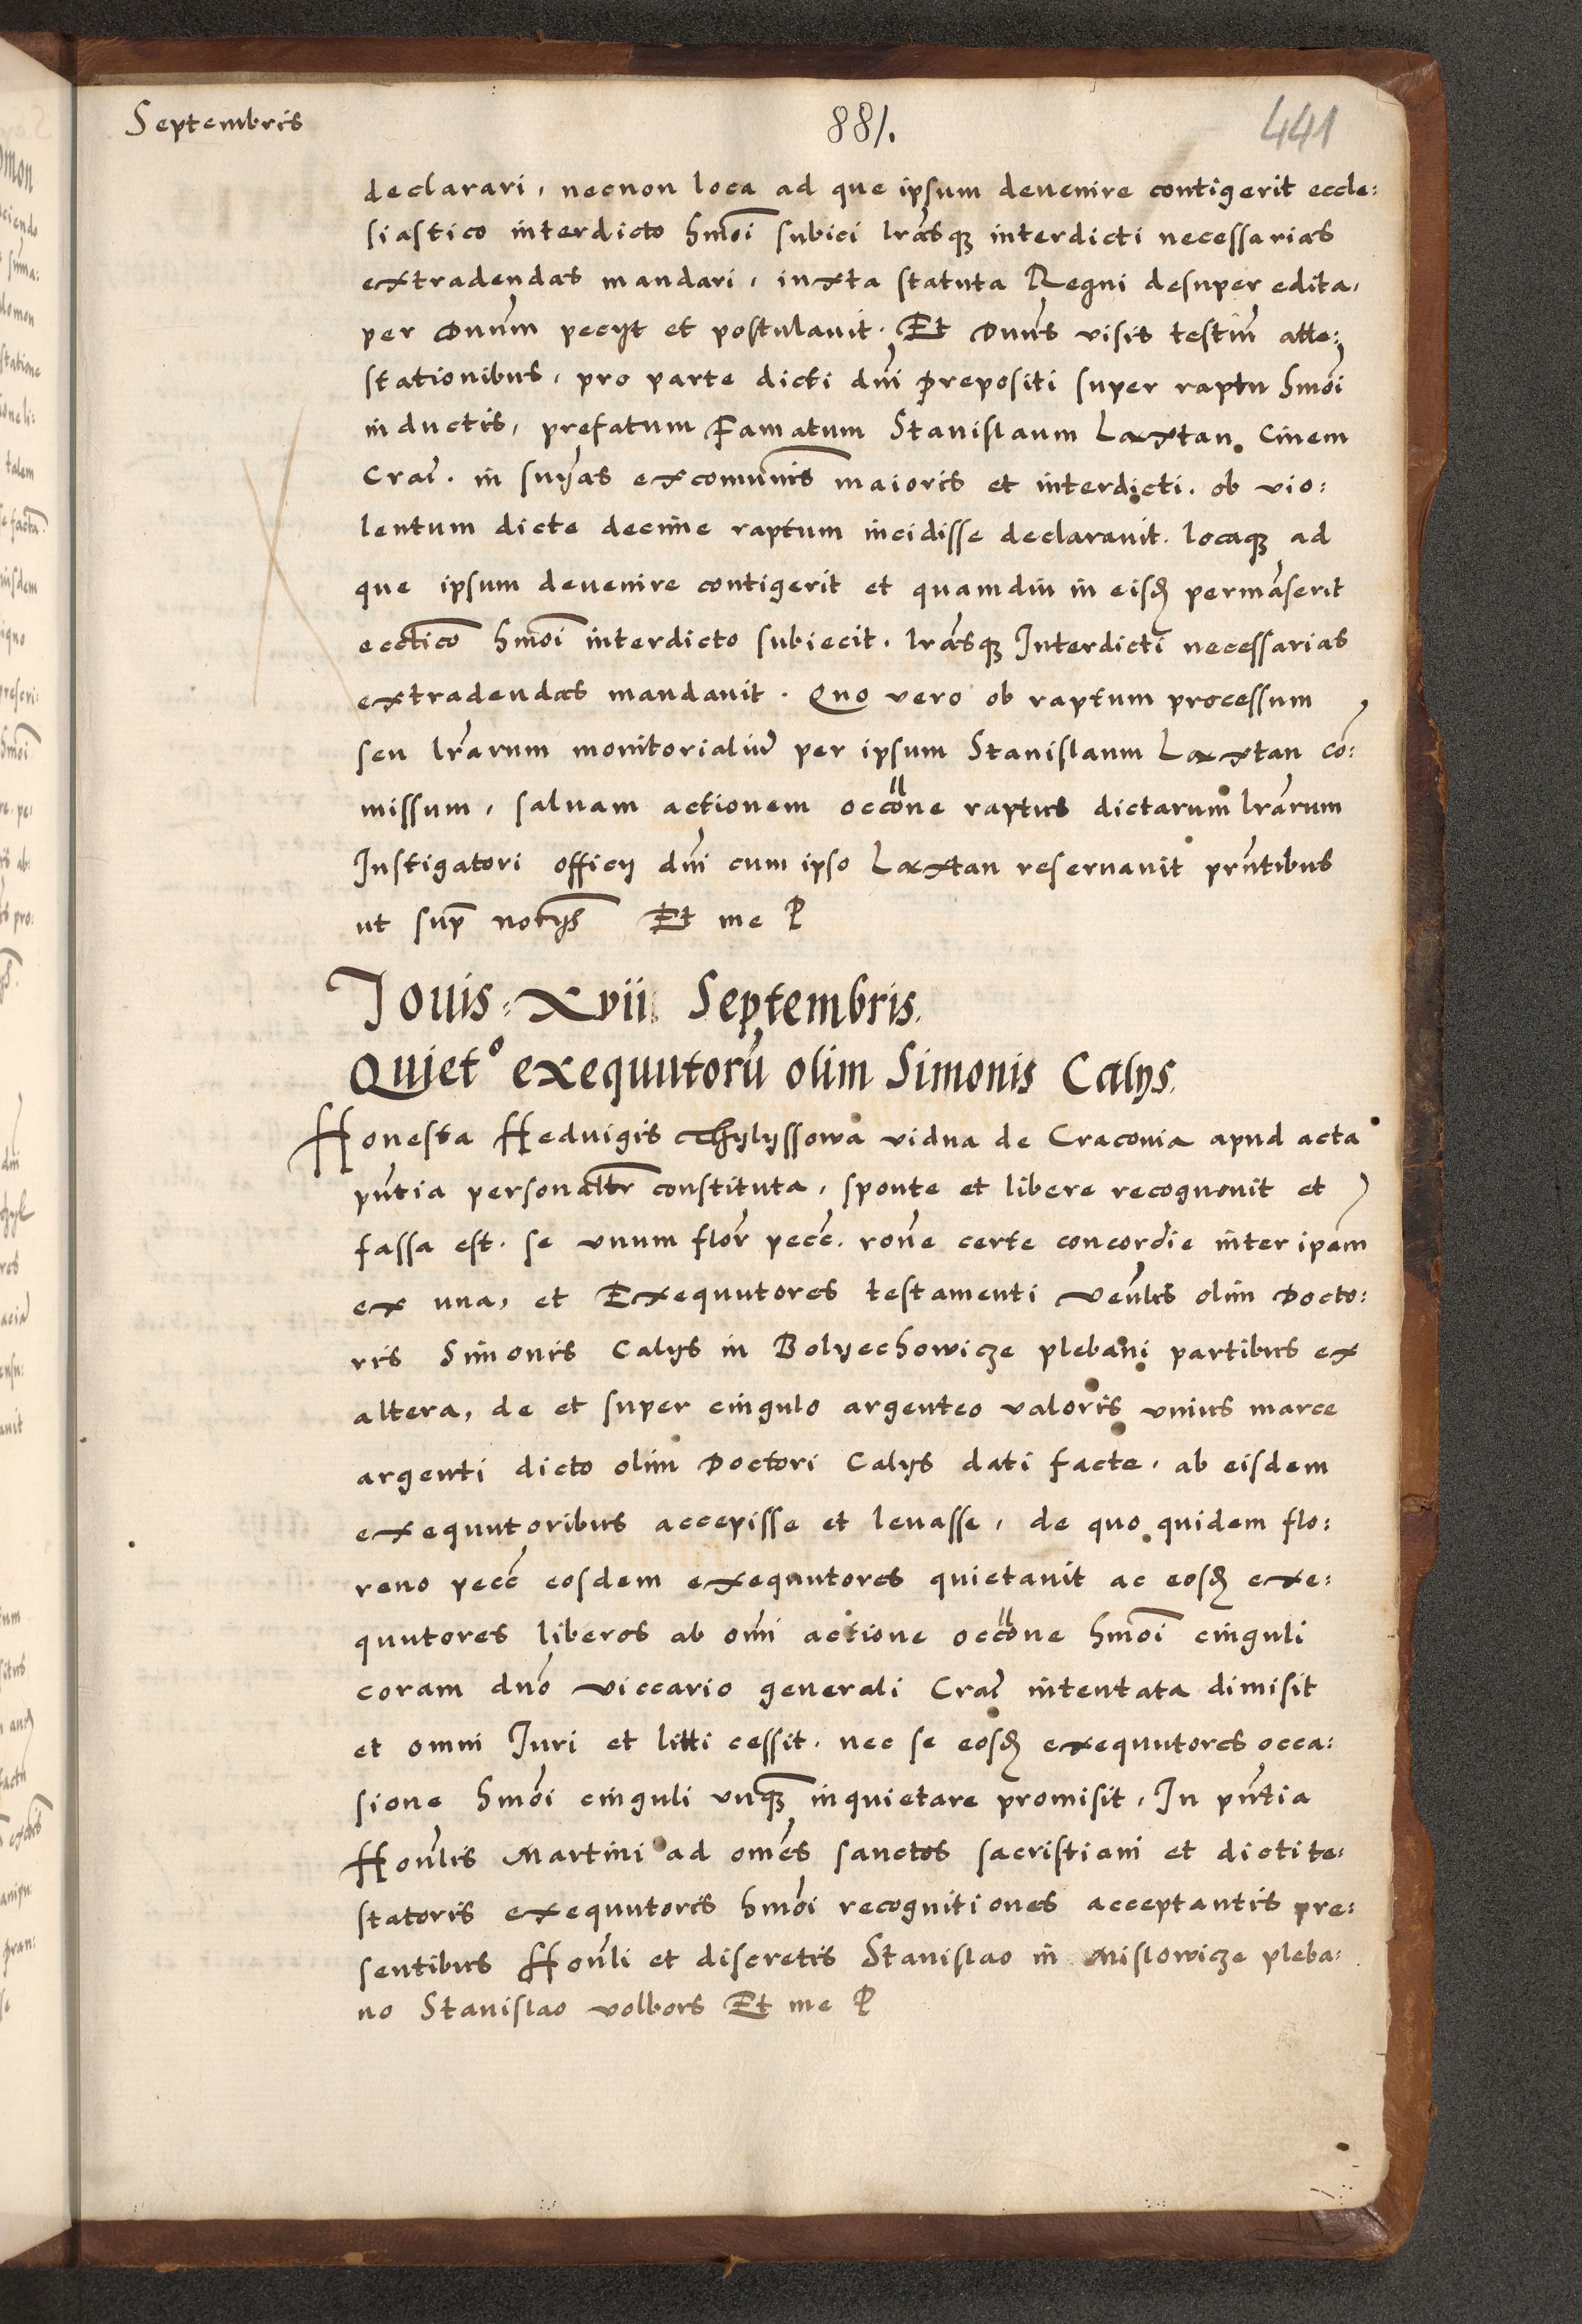 Septembris 881. 441
declarari, necnon loca ad que ipsum devenire contigerit eccle:
siastico interdicto hmōi subici lrāsq; interdicti necessarias
extradendas mandari, iuxta statuta Regni desuper edita,
per Dnūm pecijt et postulauit. Et Dnūs visis testiū atte:
stationibus, pro parte dicti dnī Prepositi super raptu hmōi
inductis, prefatum Famatum Stanislaum Laxtan Ciuem
Crac̄. in snīas excomunīs maioris et interdicti. ob vio:
lentum dicte decime raptum incidisse declarauit. locaq; ad
que ipsum deuenire contigerit et quamdiu in eisd permāserit
ecctico hmōi interdicto subiecit. lrāsq; Interdicti necessarias
extradendas mandauit. Quo vero ob raptum processum
seu lrārum monitorialiū per ipsum Stanislaum Laxtan cō:
missum, saluam actionem occōne raptus dictarum lrārum
Instigatori officij dnī cum ipso Laxtan reseruauit prn̄tibus
ut sup̄ notijs Et me P
Jouis. xvii. Septembris.
Quiet° exequutorū olim Simonis Calys.
Honesta Heduigis Chylyssowa vidua de Cracouia apud acta
pn̄tia personaltr constituta, sponte et libere recognouit et
fassa est. se vnum flor̄ pecc̄. rone certe concordie inter ipam
ex una, et Exequutores testamenti venlis olim Docto:
ris Simonis Calys in Bolyechowicze plebani partibus ex
altera, de et super cingulo argenteo valoris vnius marce
argenti dicto olim Doctori Calys dati facte, ab eisdem
exequutoribus accepisse et leuasse, de quo quidem flo:
reno pecc̄ eosdem exequutores quietauit ac eosd exe:
quutores liberos ab omī actione occōne hmōi cinguli
coram dnō viccario generali Crac̄ intentata dimisit
et omni Iuri et litti cessit. nec se eosd exequutores occa:
sione hmōi cinguli vnq̄ inquietare promisit, In pn̄tia
Honlis Martini ad omēs sanctos sacristiani et dicti te:
statoris exequutoris hmōi recognitiones acceptantis pre:
sentibus Honli et discretis Stanislao in Mislowicze pleba:
no Stanislao volbors Et me P